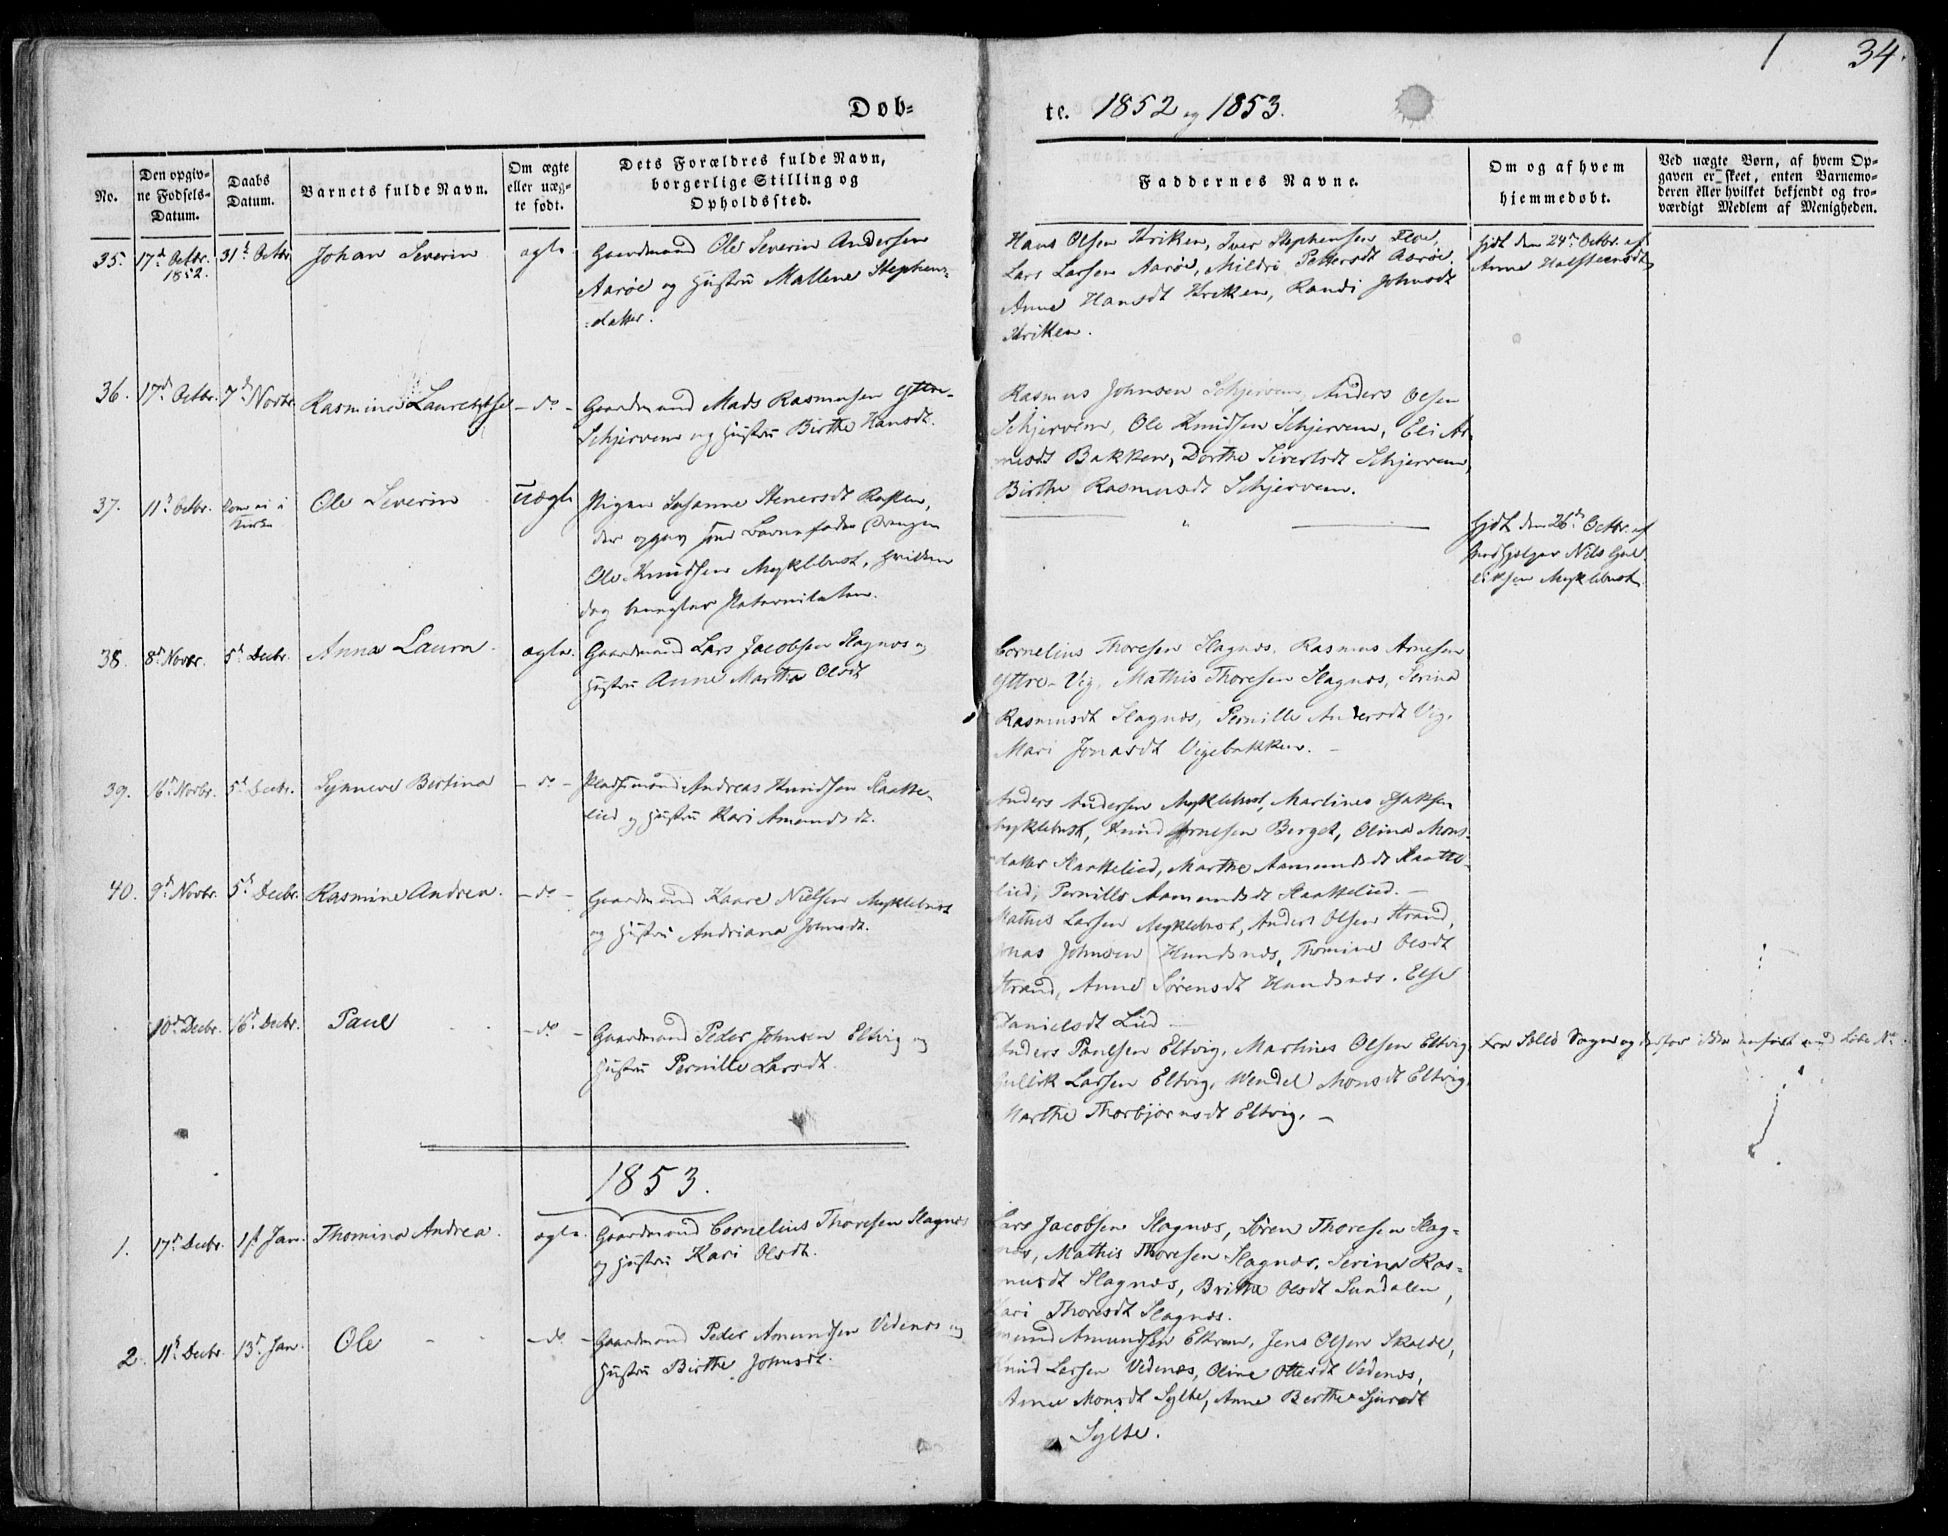 34.
Døb-
te. 1852 og 1853.
No.
Den opgiv-
ne Fødsels-
Datum.
Daabs
Datum.
Barnets fulde Navn.
Om ægte
eller uæg-
te født.
Dets Forældres fulde Navn,
borgerlige Stilling og
Opholdssted.
Faddernes Navne.
Om og af hvem
hjemmedøbt.
Ved uægte Børn, af hvem Op-
gaven er skeet, enten Barnemo-
deren eller hvilket bekjendt og tro-
værdigt Medlem af Menigheden.
35. 17d Octbr. 1852. 31t Octbr. Johan Severin ægte
Gaardmand Ole Severin Andersen
Aarøe og Hustru Mallene Stephens-
datter.
Hans Olsen Kriken, Iver Stephensen Floe,
Lars Larsen Aarøe, Mildri Pettersdt Aarøe,
Anne Hansdt Kriken, Randi Johnsdt
Kriken.
hjdt den 24de Octbr. af
Anne Halsteensdt
36. 17d Octbr. 7d Novbr. Rasmine Laurentse - do -
Gaardmand Mads Rasmusen Yttre-
Schjervem og Hustru Birthe Hansdt.
Rasmus Johnsen Schjervem, Anders Olsen
Schjervem, Ole Knudsen Schjervem, Eli Ar-
nesdt Bakken, Dorthe Sivertsdt Schjervem,
Birthe Rasmusdt Schjervem.
37. 11t Octbr. Kom ei i
Kirke
Ole Severin uægte
Pigen Susanne Stenersdt
der opgav som Barnefader Drengen
Ole Knudsen Myklebust, hvilken
dog benegter Paterniteten.
hjdt den 26de Octbr. af
Medhjelper Nils Gul-
liksen Myklebust.
38. 8d Novbr. 5t Decbr. Anna Laura. ægte.
Gaardmand Lars Jacobsen Slagnæs og
Hustru Anne Martha Olsdt
Cornelius Thoresen Slagnæs, Rasmus Arnesen
Yttre-Vig, Mathis Thoresen Slagnæs, Serina
Rasmusdt Slagnæs, Pernille Andersdt Vig,
Mari Jonasdt Vigebakken. -
39. 16d Novbr. 5t Decbr. Synneve Bertina - do -
Pladsmand Andreas Knudsen Slatte-
lied og Hustru Kari Amundsdt.
Anders Andersen Myklebust, Martinus Isaksen
Myklebust, Knud Arnesen Berget, Olina Mons-
datter Slattelied, Marthe Aamundsdt Slatte-
lied, Pernille Aamundsdt Slattelied. -
40. 9d Novbr. 5t Decbr. Rasmine Andrea. - do -
Gaardmand Kaare Nielsen Myklebust
og Hustru Andriana Johnsdt.
Mathis Larsen Myklebust, Anders Olsen Strand,
Jonas Johnsen Hundsnæs, Thomine Olsdt
Strand, Anne Sørensdt Hundsnæs. Else
Danielsdt Lied -
10d Decbr. 16d Decbr. Paul - do -
Gaardmand Peder Johnsen Eltvig og
Hustru Pernille Larsdt.
Anders Paulsen Eltvig, Martinus Olsen Eltvig,
Gullik Larsen Eltvig, Wendel Monsdt Eltvig,
Marthe Thorbjørnsdt Eltvig. -
Fra Selø Sogn og derfor ikke anført med Løbe No.
1853.
1. 17d Decbr. 1st Jan. Thomina Andrea. ægte.
Gaardmand Cornelius Thoresen Slagnæs
og Hustru Kari Olsdt.
Lars Jacobsen Slagnæs, Søren Thoresen Slag-
næs, Mathis Thoresen Slagnæs, Serina Ras-
musdt Slagnæs, Brithe Olsdt Sundalen,
Kari Thoresdt Slagnæs.
2. 11t Decbr. 13d Jan. Ole - - - do -
Gaardmand Peder Amundsen Vedenæs og
Hustru Birthe Johnsdt.
Amund Amundsen Ekrem, Jens Olsen Skorge,
Knud Larsen Vedenæs, Oline Ottesdt Vedenæs,
Anne Monsdt Sylte, Anne Berthe Sjursdt
Sylte.